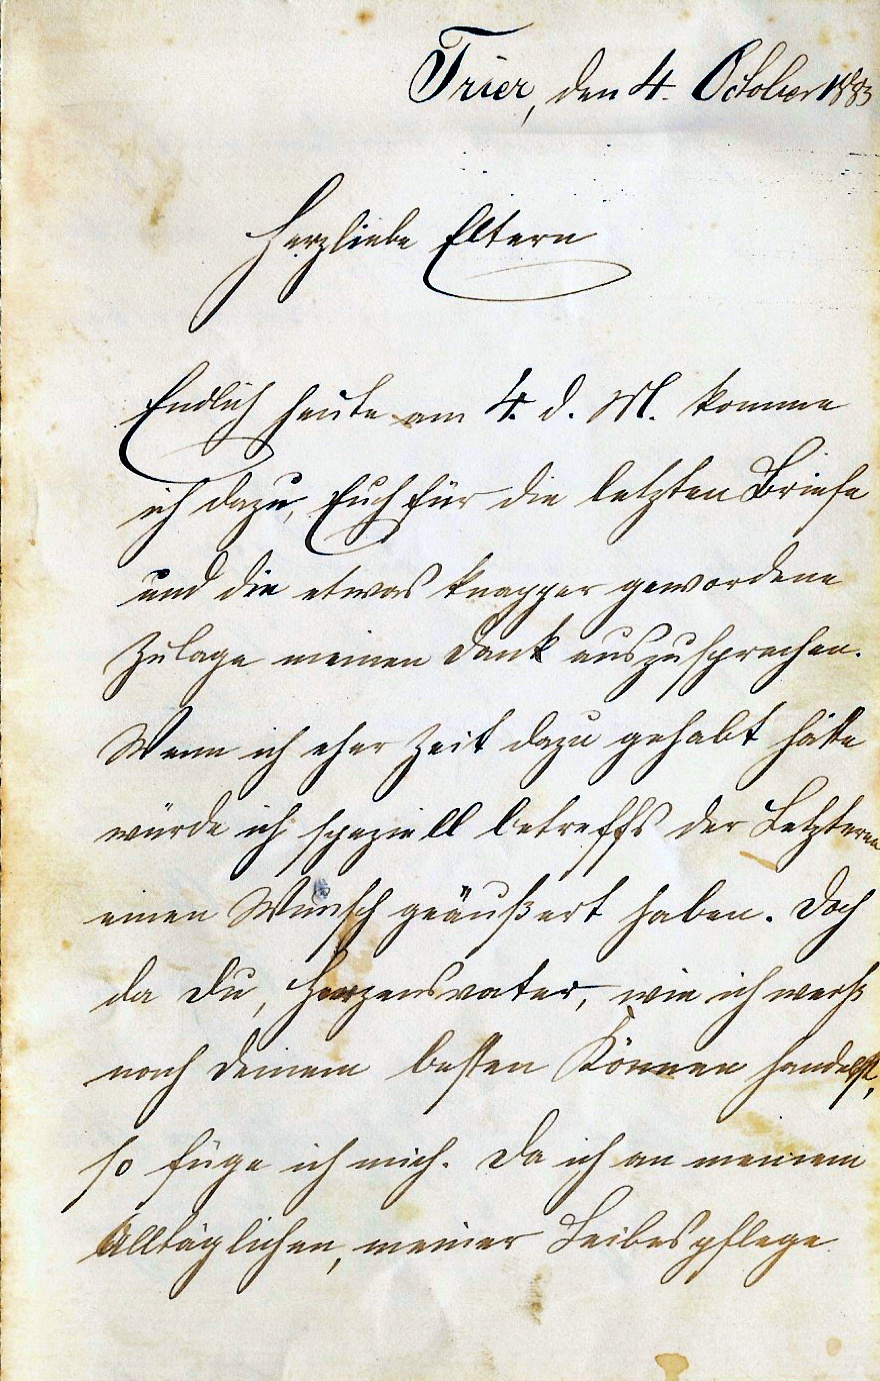 Trier, den 4. October 1883
Herzliebe Eltern
Endlich heute am 4. d. M. komme
ich dazu, Euch für die letzten Briefe
und die etwas knapper gewordene
Zulage meinen Dank auszusprechen.
Wenn ich eher Zeit dazu gehabt hätte
würde ich speziell betreffs der Letzteren
einen Wunsch geäußert haben. Doch
da Du, Herzensvater, wie ich weiß
nach Deinem besten Können handelst,
so füge ich mich. Da ich an meinem
Alltäglichen, meiner Leibespflege